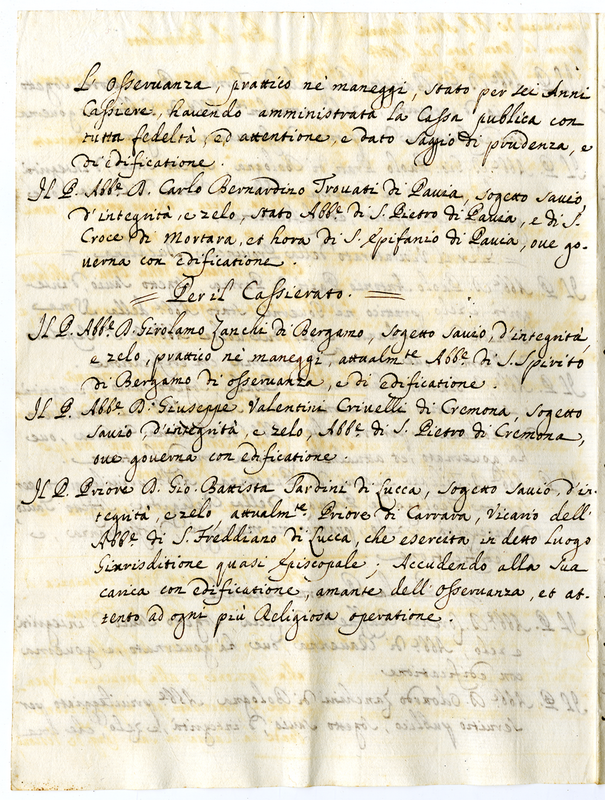 L'osservanza, prattico nè maneggi, stato per sei Anni
Cassiere, havendo amministrata la Cassa publica con
tutta fedeltà, ed attentione, e dato Saggio di prudenza, e
di edificatione.
Il P. Abb.e D. Carlo Bernardino Trovati di Pavia, sogetto savio,
d'integrità, e zelo, stato Abb.e di S. Pietro di Pavia, e di S.
Croce di Mortara, et hora di S. Epifanio di Pavia, ove go-
verna con edificatione.
Per il Cassierato.
Il P. Abb.e D. Girolamo Zanchi di Bergamo, sogetto savio, d'integrità,
e zelo, prattico nè maneggi, attualm.te Abb.e di S. Spirito
di Bergamo di osservanza, e di edificatione.
Il P. Abb.e D. Giuseppe Valentini Crivelli di Cremona, sogetto
savio, d'integrità, e zelo, Abb.e di S. Pietro di Cremona,
ove governa con edificatione.
Il P. Priore D. Gio. Battista Tardini di Lucca, sogetto savio, d'in-
tegrità, e zelo, attualm.te Priore di Carrara, Vicario dell'
Abb.e di S. Freddiano di Lucca, che esercita in detto luogo
Giurisditione quasi Episcopale; Accudendo alla sua
carica con edificatione, amante dell'osservanza, et at-
tento ad ogni più Religiosa operatione.